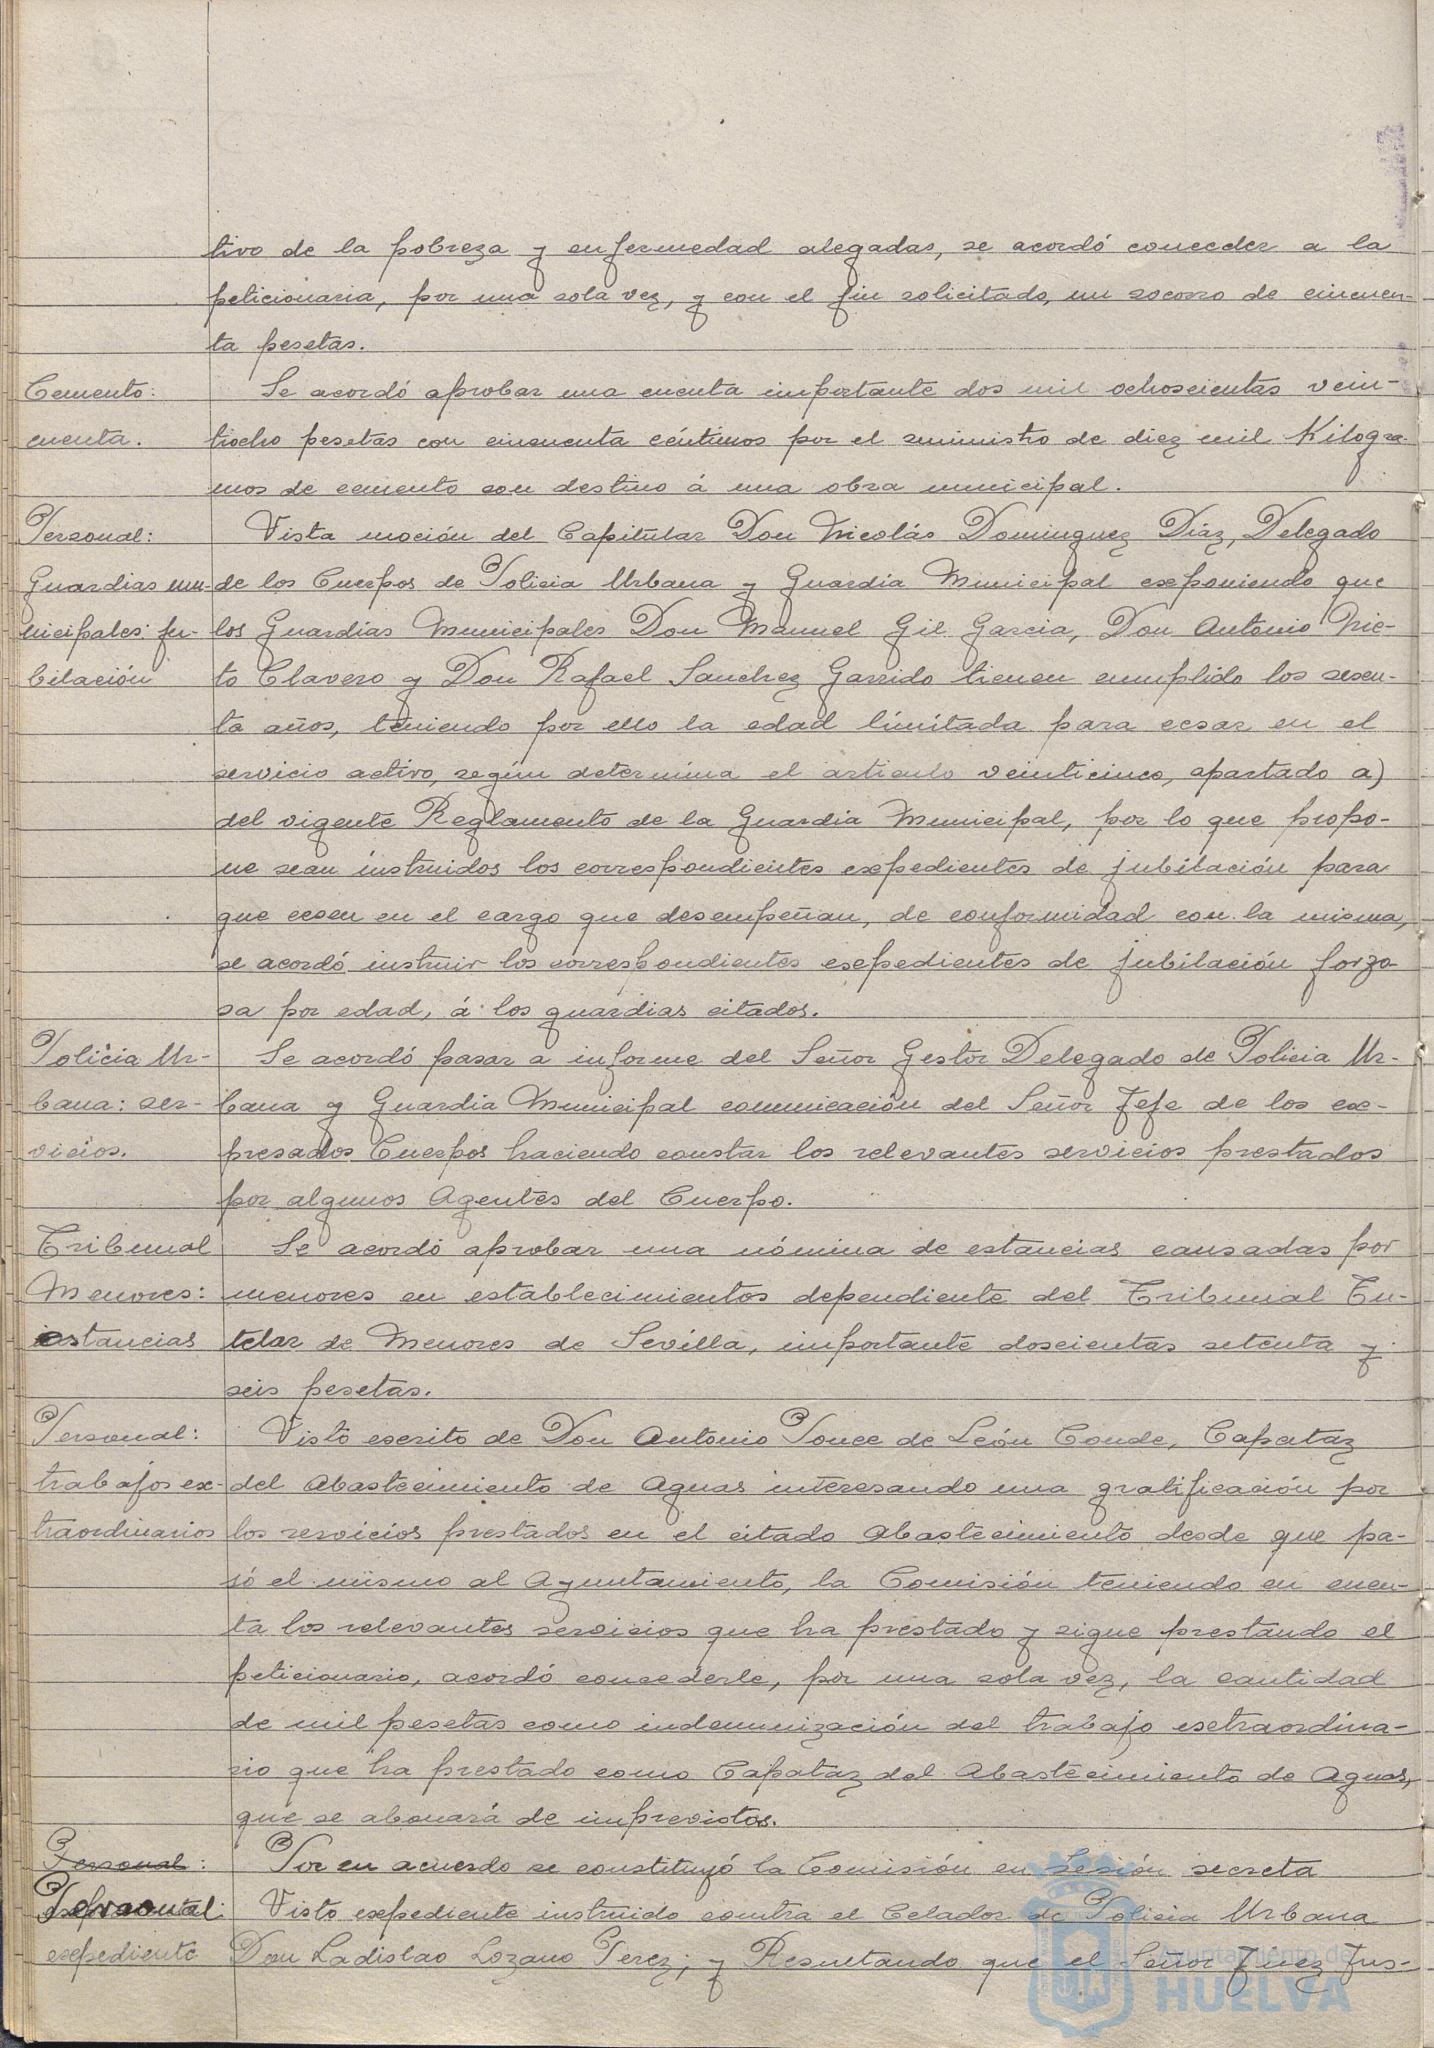 tivo de la pobreza y enfermedad alegadas, se acordó conceder a la
peticionaria, por una sola vez, y con el fin solicitado, un socorro de cincuen-
ta pesetas.
Cemento: Se acordó aprobar una cuenta importante dos mil ochoscientas vein-
cuenta. tiocho pesetas con cincuenta céntimos por el suministro de diez mil Kilogra-
mos de cemento con destino á una obra municipal.
Personal: Vista moción del Capitular Don Nicolás Dominguez Díaz, Delegado
Guardias mu- de los Cuerpos de Policia Urbana y Guardia Municipal exponiendo que
nicipales: ju- los Guardias Municipales Don Manuel Gil Garcia, Don Antonio Nie-
bilación to Clavero y Don Rafael Sanchez Garrido tienen cumplido los sesen-
ta años, teniendo por ello la edad límitada para cesar en el
servicio activo, según determina el articulo veinticinco, apartado a)
del vigente Reglamento de la Guardia Municipal, por lo que propo-
ne sean instruidos los correspondientes expedientes de jubilación para
que cesen en el cargo que desempeñan, de conformidad con la misma,
se acordó instruir los correspondientes expedientes de jubilación forzo-
sa por edad, á los guardias citados.
Policia Ur- Se acordó pasar a informe del Señor Gestor Delegado de Policia Ur-
bana: ser- bana y Guardia Municipal comunicación del Señor Jefe de los ex-
vicios. presados Cuerpos haciendo constar los relevantes servicios prestados
por algunos Agentes del Cuerpo.
Tribunal Se acordó aprobar una nómina de estancias causadas por
Menores: menores en establecimientos dependiente del Tribunal Tu-
estancias telar de Menores de Sevilla, importante doscientas setenta y
seis pesetas.
Personal: Visto escrito de Don Antonio Ponce de León Conde, Capataz
trabajos ex- del Abastecimiento de Aguas interesando una gratificación por
traordinarios los servicios prestados en el citado Abastecimiento desde que pa-
só el mismo al Ayuntamiento, la Comisión teniendo en cuen-
ta los relevantes servicios que ha prestado y sigue prestando el
peticionario, acordó concederle, por una sola vez, la cantidad
de mil pesetas como indemnización del trabajo extraordina-
rio que ha prestado como Capataz del Abastecimiento de Aguas,
que se abonará de imprevistos.
Personal: Por en acuerdo se constituyó la Comisión en Sesión secreta
Personal: Visto expediente instruido contra el Celador de Policia Urbana
expediente Don Ladislao Lozano Perez; y Resultando que el Señor Juez Jus-
Ayuntamiento de
HUELVA